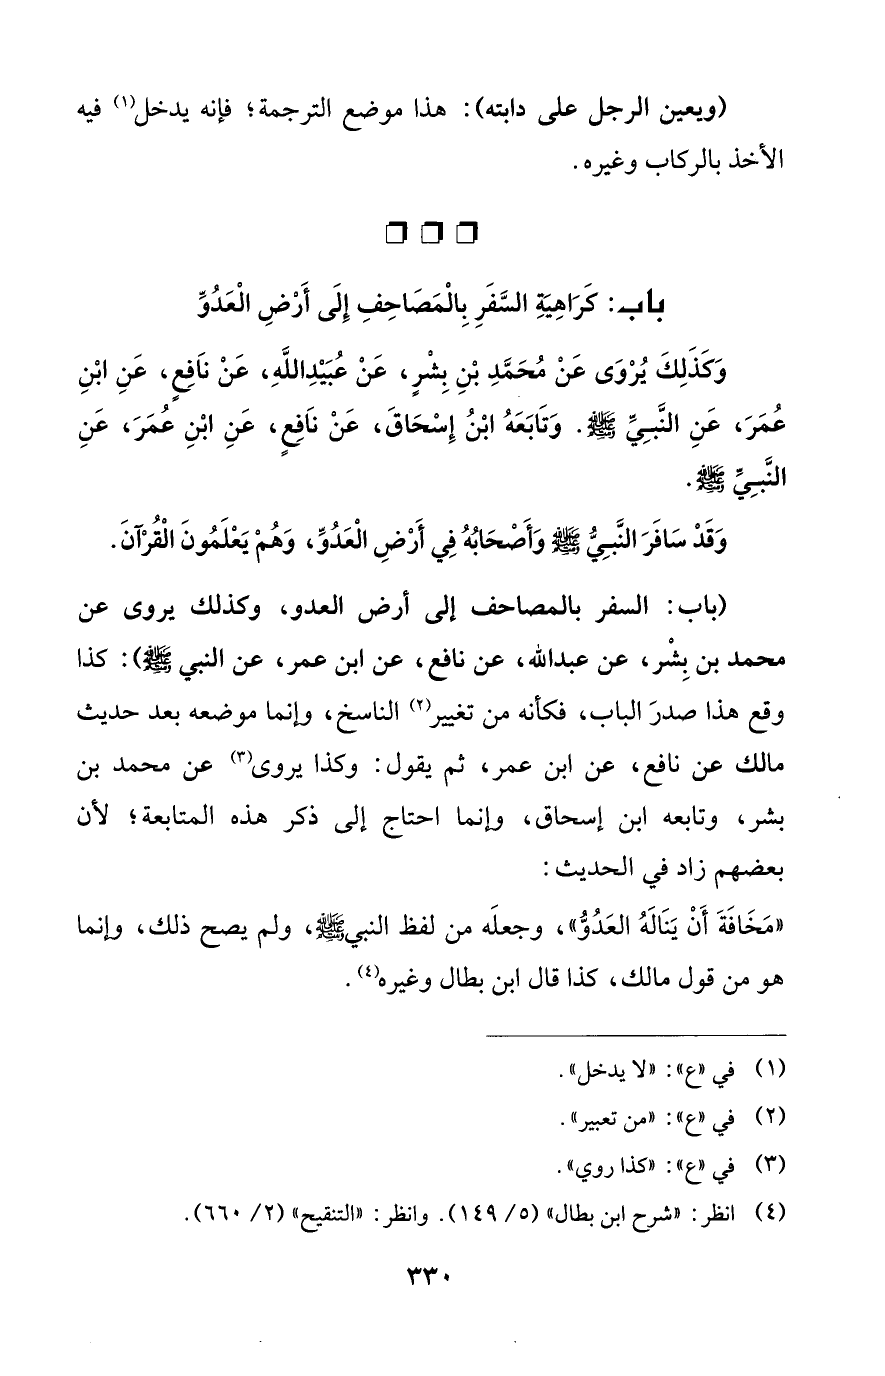 (ويعين الرجل على دابته): هذا موضع الترجمة؛ فإنه يدخل(١) فيه
الأخذ بالركاب وغيره.
❒ ❒ ❒
باب: كَرَاهِيَةِ السَّفَرِ بِالْمَصَاحِفِ إِلَى أَرْضِ الْعَدُوِّ
وَكَذَلِكَ يُرْوَى عَنْ مُحَمَّدِ بْنِ بِشْرٍ، عَنْ عُبَيْدِاللَّهِ، عَنْ نَافِعٍ، عَنِ ابْنِ
عُمَرَ، عَنِ النَّبِيِّ ﷺ. وَتَابَعَهُ ابْنُ إِسْحَاقَ، عَنْ نَافِعٍ، عَنِ ابْنِ عُمَرَ، عَنِ
النَّبِيِّ ﷺ.
وَقَدْ سَافَرَ النَّبِيُّ ﷺ وَأَصْحَابُهُ فِي أَرْضِ الْعَدُوِّ، وَهُمْ يَعْلَمُونَ الْقُرْآنَ.
(باب: السفر بالمصاحف إلى أرض العدو، وكذلك يروى عن
محمد بن بِشْر، عن عبدالله، عن نافع، عن ابن عمر، عن النبي ﷺ): كذا
وقع هذا صدرَ الباب، فكأنه من تغيير(٢) الناسخ، وإنما موضعه بعد حديث
مالك عن نافع، عن ابن عمر، ثم يقول: وكذا يروى(٣) عن محمد بن
بشر، وتابعه ابن إسحاق، وإنما احتاج إلى ذكر هذه المتابعة؛ لأن
بعضهم زاد في الحديث:
«مَخَافَةَ أَنْ يَنَالَهُ العَدُوُّ»، وجعلَه من لفظ النبي ﷺ، ولم يصح ذلك، وإنما
هو من قول مالك، كذا قال ابن بطال وغيره(٤).
(١) في «ع»: «لا يدخل».
(٢) في «ع»: «من تعبير».
(٣) في «ع»: «كذا روي».
(٤) انظر: «شرح ابن بطال» (٥/ ١٤٩). وانظر: «التنقيح» (٢/ ٦٦٠).
٣٣٠